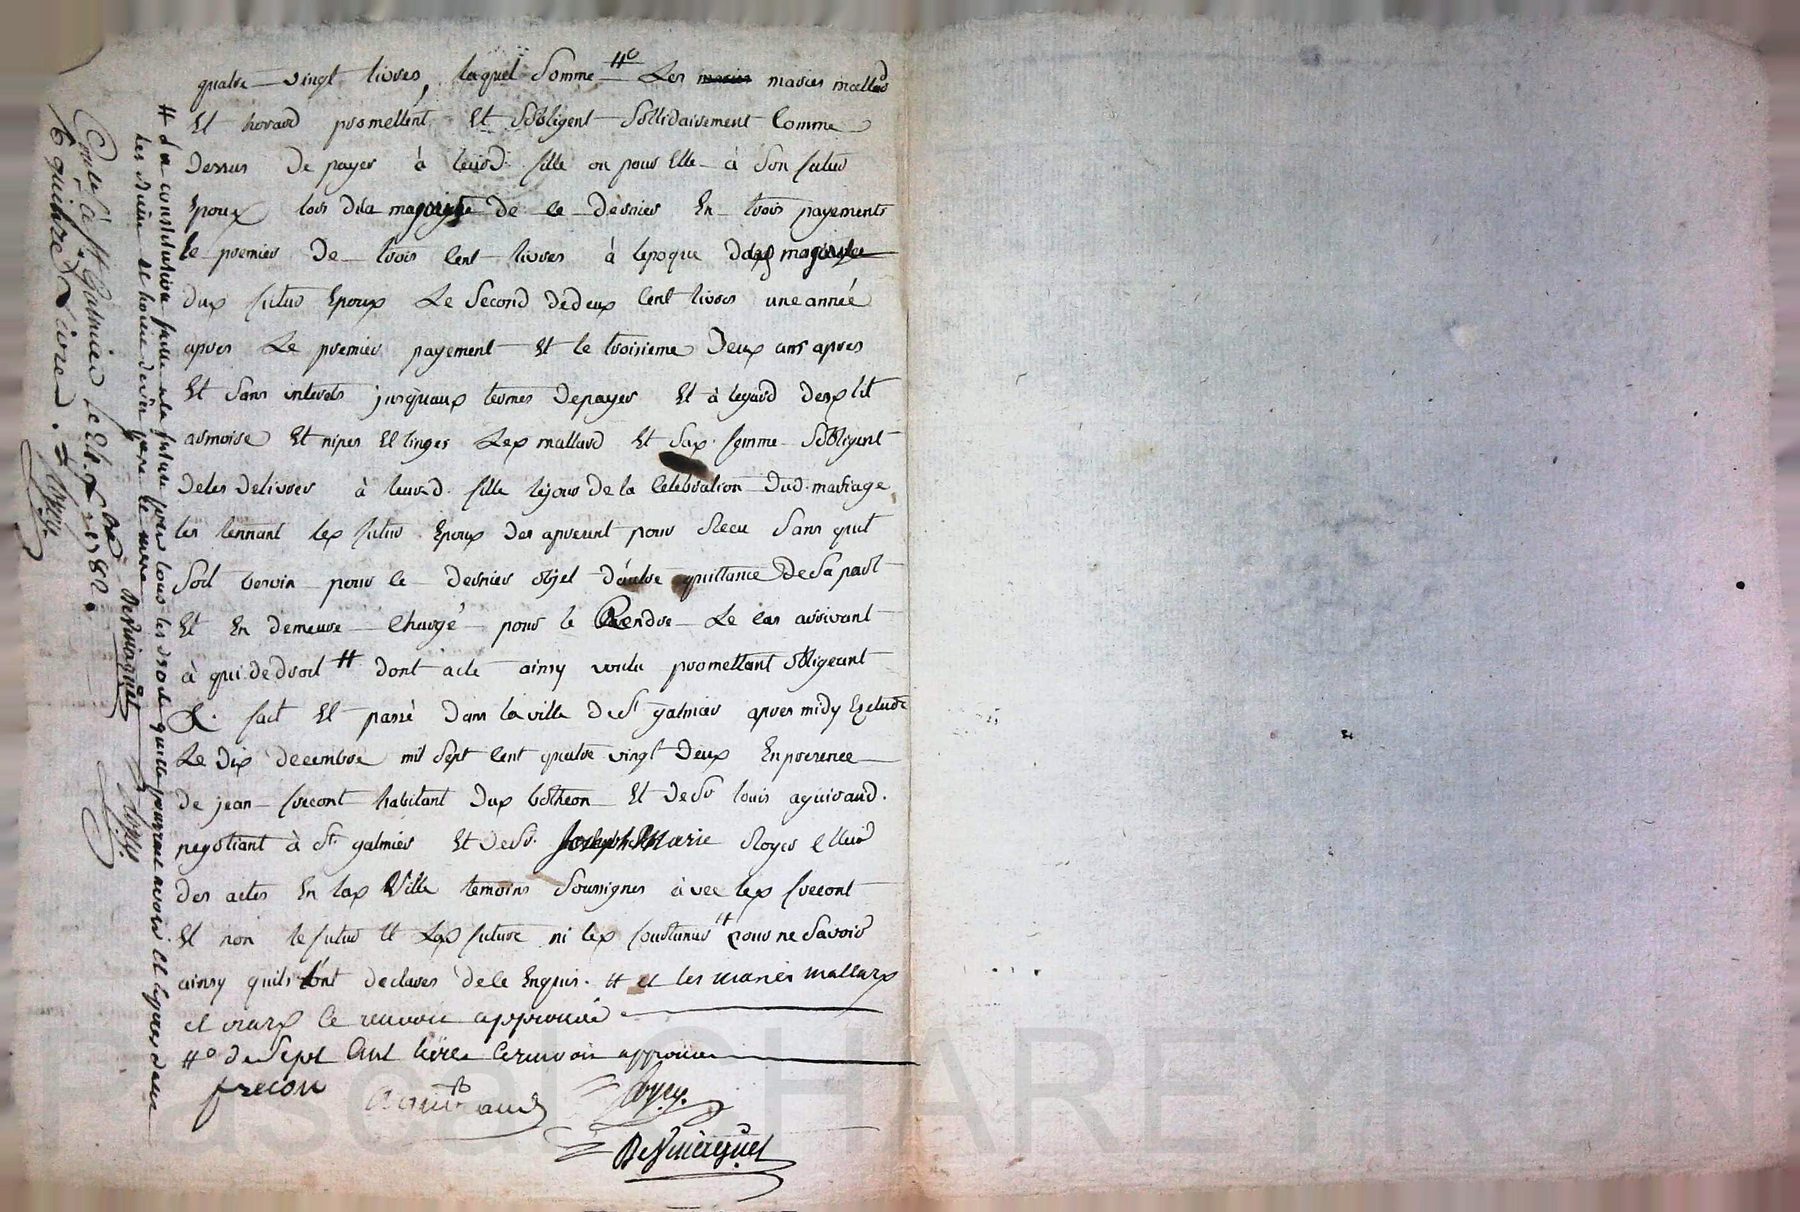 quatre vingt livres, laquel Somme #o Les maries maries mallard
Et horard promettent Et Sobligent Sollidairement Comme
dessus De payer à leurd. fille ou pour Elle à Son futur
Epoux lors dela de ce Dernier En trois payements
le premier De trois Cent livres à lepoque
dud futur Epoux Le Second dedeux Cent livres une année
apres Le premier payement Et le troisieme Deux ans apres
Et Sans interets jusquaux termes depayer Et à legard desd lit
armoire Et nipes Et linges Led mallard Et Sad femme Sobligent
deles delivrer à leurd. fille lejour de la Celebration Dud. mariage
les tennant led futur Epoux des apresent pour Recu Sans quil
Soit besoin pour ce Dernier objet Dautre quittance De Sa part
Et En demeure Chargé pour le Rendre Le Cas arrivant
à qui de droit # dont acte ainsy voulu promettant obligeant
&. fait Et passé Dans la ville De St galmier apres midy
Le Dix decembre mil Sept Cent quatre vingt Deux En presence
de jean frecont habitant dud botheon Et De Sr louis aguiraud.
negotiant à St. galmier Et De Sr. Joseph Marie Royer
des actes En lad Ville temoins Soussignes avec led frecont
Et non le futur Et Lad future ni led # pour ne Savoir
ainsy quils ont declares dece Enquis. # et les mariés mallard
et le renvoi approuvé
#o de Sept Cent livres le renvoi approuvé
frecon Aguiraud Royer.
# La constitution faite à la future pour tous les droits quelle pourrait avoir Et
les biens de son père Et mère
Contlé à St Galmier le 21. Xbre 1782.
Reçu quinze livres.